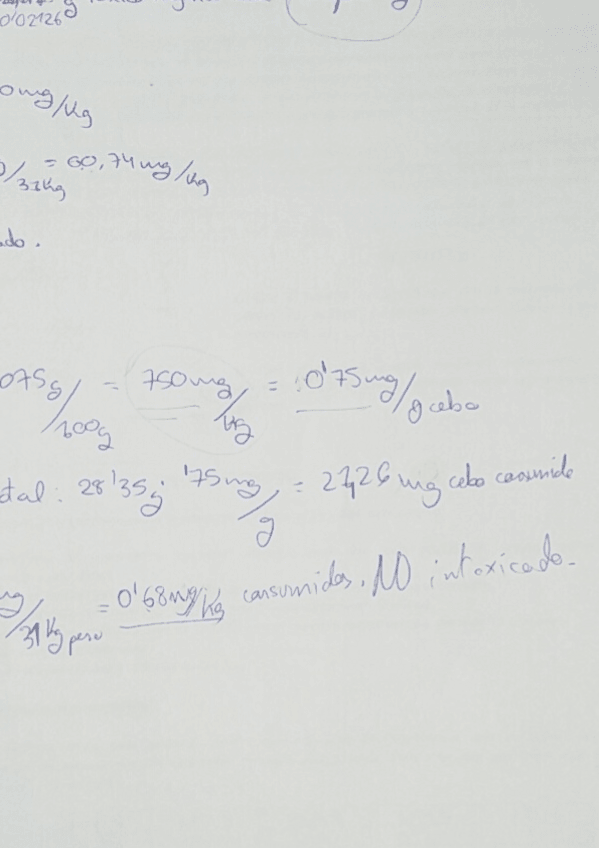 0'02126
0mg/Kg
/31Kg = 60,74mg/Kg
ado.
075g/100g = 750mg/Kg = 0'75mg/g cebo
tal: 28'35g · '75mg/g = 21,26 mg cebo consumido
mg/31Kg peso = 0'68mg/Kg consumidos. NO intoxicado.